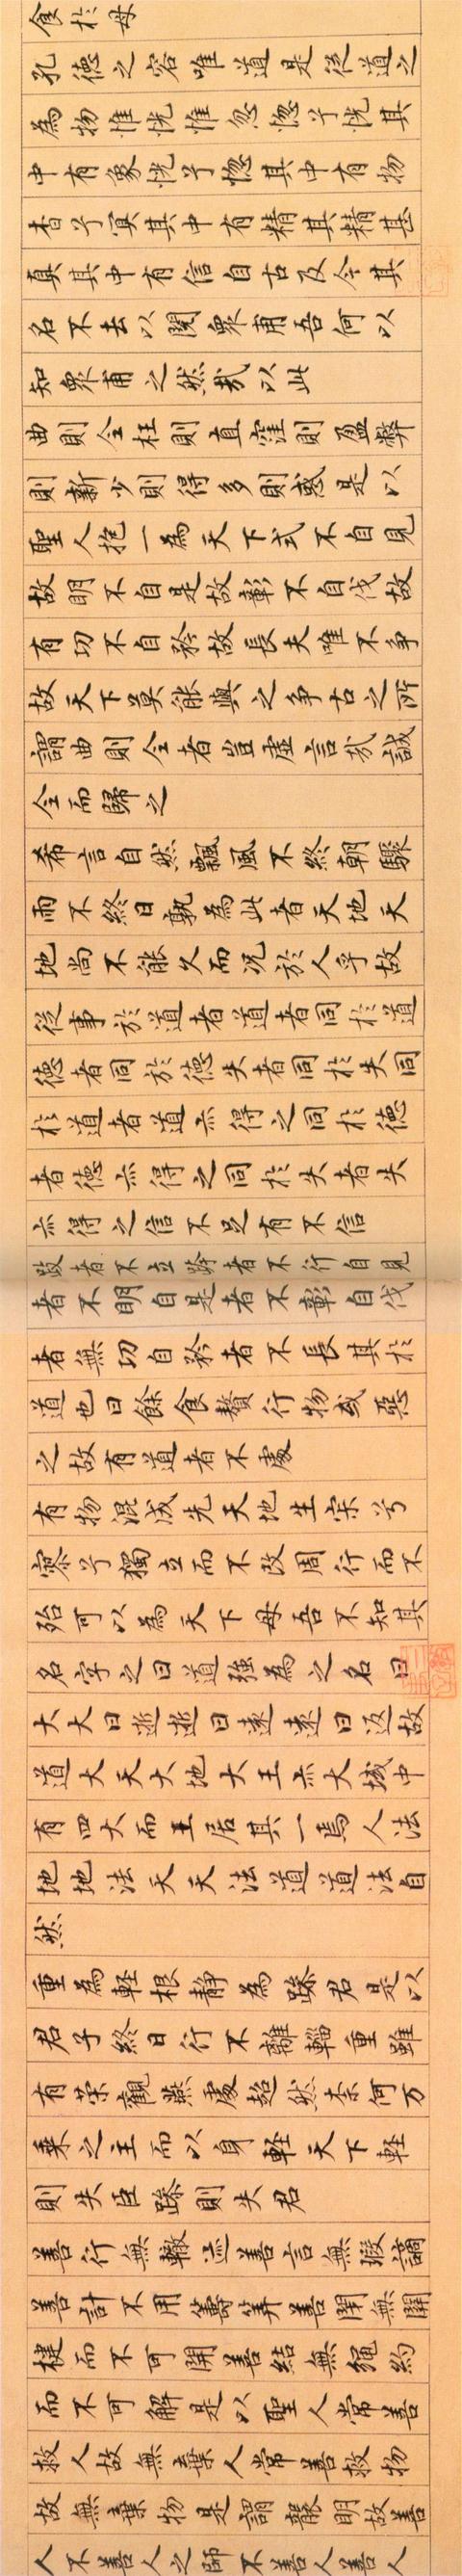 食於母
孔德之容唯道是從道之
為物惟恍惟忽惚兮恍其
中有象恍兮惚其中有物
杳兮冥其中有精其精甚
真其中有信自古及今其
名不去以閱衆甫吾何以
知衆甫之然哉以此
曲則全枉則直窪則盈弊
則新少則得多則惑是以
聖人抱一為天下式不自見
故明不自是故彰不自伐故
有功不自矜故長夫唯不爭
故天下莫能與之爭古之所
謂曲則全者豈虛言哉誠
全而歸之
希言自然飄風不終朝驟
雨不終日孰為此者天地天
地尚不能久而况於人乎故
從事於道者道者同於道
德者同於德失者同於失同
於道者道亦得之同於德
者德亦得之同於失者失
亦得之信不足有不信
跂者不立跨者不行自見
者不明自是者不彰自伐
者無功自矜者不長其於
道也曰餘食贅行物或惡
之故有道者不處
有物混成先天地生寂兮
寥兮獨立而不改周行而不
殆可以為天下母吾不知其
名字之曰道强為之名曰
大大曰逝逝曰遠遠曰返故
道大天大地大王亦大域中
有四大而王居其一焉人法
地地法天天法道道法自
然
重為輕根静為躁君是以
君子終日行不離輜重雖
有榮觀燕處超然柰何万
乘之主而以身輕天下輕
則失臣躁則失君
善行無轍迹善言無瑕謫
善計不用籌筭善閉無關
楗而不可開善結無繩約
而不可解是以聖人常善
救人故無棄人常善救物
故無棄物是謂襲明故善
人不善人之師不善人善人